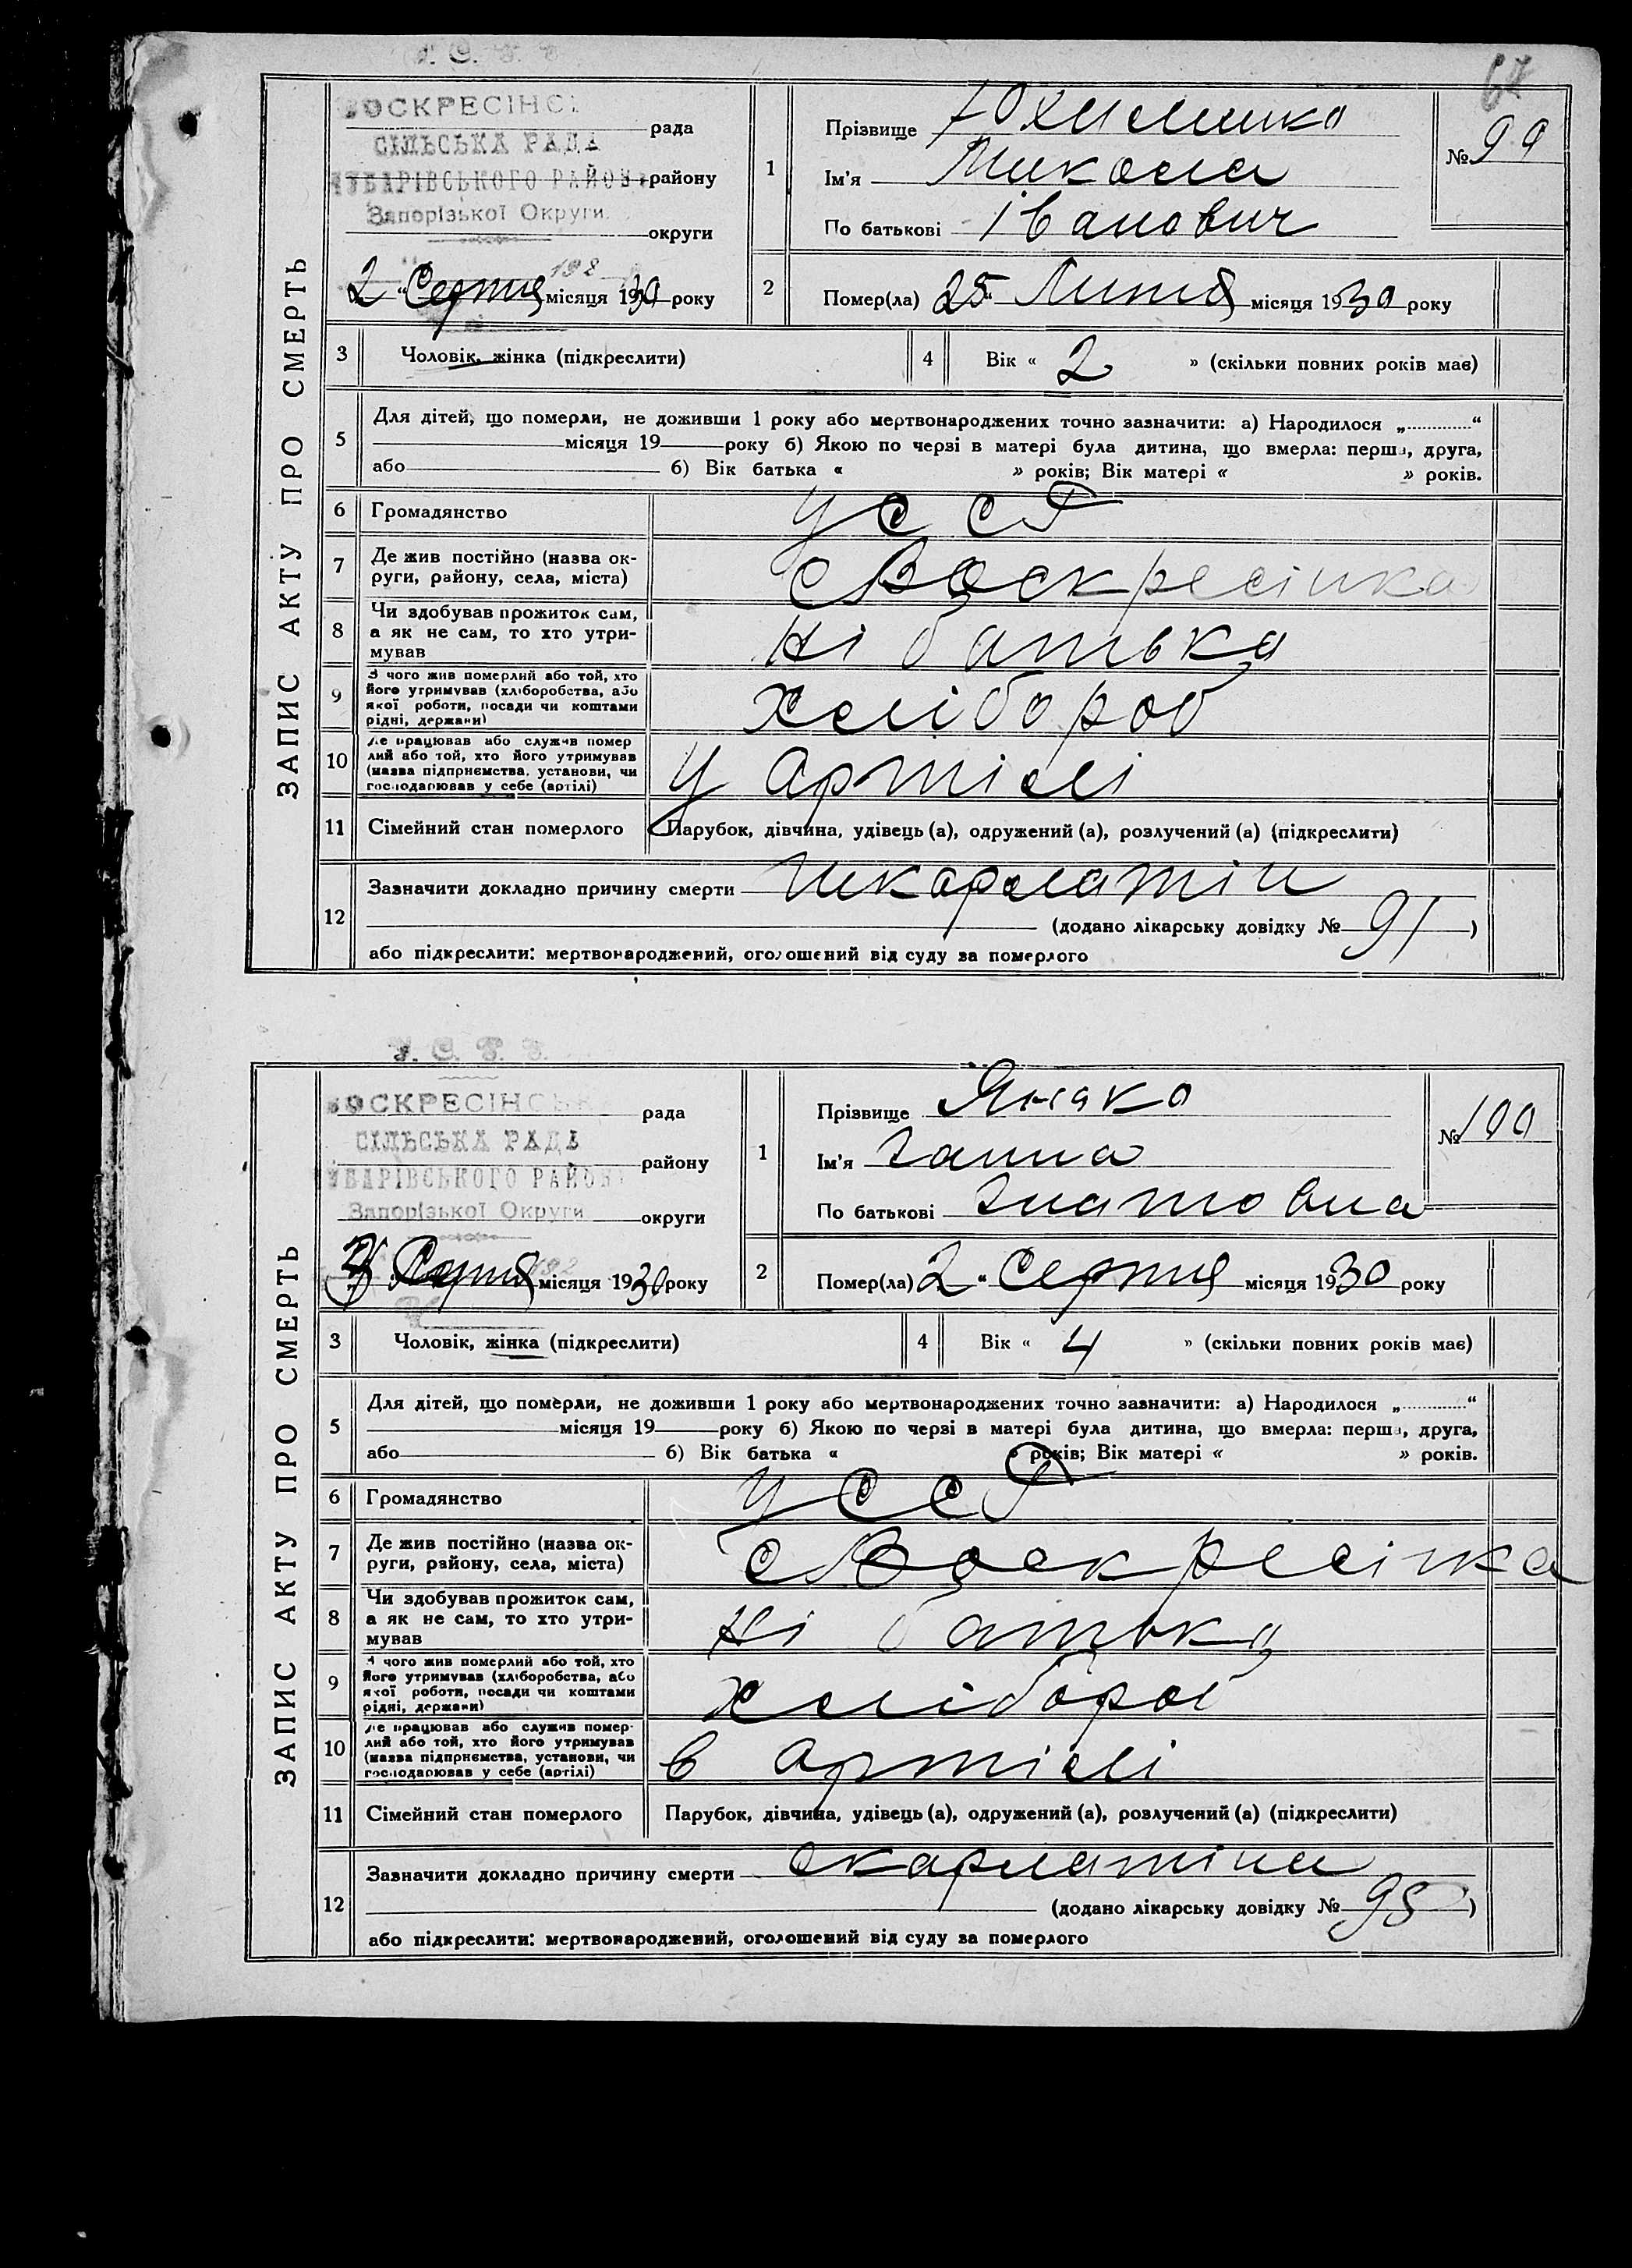 У. С. Р. Р.
67
ВОСКРЕСІНС
рада
СІЛЬСЬКА РАДА
ЧУБАРІВСЬКОГО РАЙОНУ
району
Запорізької Округи
округи
192
2 " Серпня місяця 1930 року
1
Прізвище Юхименко
Ім'я Микола
По батькові Іванович
№ 99
2
Помер(ла) 25 " Липня місяця 1930 року
ЗАПИС АКТУ ПРО СМЕРТЬ
3 Чоловік, жінка (підкреслити)
4 Вік « 2 » (скільки повних років має)
5 Для дітей, що померли, не доживши 1 року або мертвонароджених точно зазначити: а) Народилося „............“
місяця 19 року б) Якою по черзі в матері була дитина, що вмерла: перша, друга,
або б) Вік батька « » років; Вік матері « » років.
6 Громадянство УССР
7 Де жив постійно (назва ок-
руги, району, села, міста) с Воскресінка
8 Чи здобував прожиток сам,
а як не сам, то хто утри-
мував Ні батька
9 З чого жив померлий або той, хто
його утримував (хліборобства, або
якої роботи, посади чи коштами
рідні, держави) хлібороб
10 Де працював або служив помер
лий або той, хто його утримував
(назва підприємства, установи, чи
господарював у себе (артілі) У артілі
11 Сімейний стан померлого Парубок, дівчина, удівець (а), одружений (а), розлучений (а) (підкреслити)
12 Зазначити докладно причину смерти шкарлатін
(додано лікарську довідку № 91 )
або підкреслити: мертвонароджений, оголошений від суду за померлого
У. С. Р. Р.
ВОСКРЕСІНСЬК
рада
СІЛЬСЬКА РАДА
району
ЧУБАРІВСЬКОГО РАЙОН
Запорізької Округи
округи
192
Серпня місяця 1930 року
1
Прізвище Янако
Ім'я Ганна
По батькові Гнатовна
№ 100
2
Помер(ла) 2 " Серпня місяця 1930 року
ЗАПИС АКТУ ПРО СМЕРТЬ
3 Чоловік, жінка (підкреслити)
4 Вік « 4 » (скільки повних років має)
5 Для дітей, що померли, не доживши 1 року або мертвонароджених точно зазначити: а) Народилося „............“
місяця 19 року б) Якою по черзі в матері була дитина, що вмерла: перша, друга,
або б) Вік батька « » років; Вік матері « » років.
6 Громадянство УССР
7 Де жив постійно (назва ок-
руги, району, села, міста) с Воскресінка
8 Чи здобував прожиток сам,
а як не сам, то хто утри-
мував Ні батька
9 З чого жив померлий або той, хто
його утримував (хліборобства, або
якої роботи, посади чи коштами
рідні, держави) хлібороб
10 Де працював або служив помер-
лий або той, хто його утримував
(назва підприємства, установи, чи
господарював у себе (артілі) в артілі
11 Сімейний стан померлого Парубок, дівчина, удівець (а), одружений (а), розлучений (а) (підкреслити)
12 Зазначити докладно причину смерти скарлатіни
(додано лікарську довідку № 95 )
або підкреслити: мертвонароджений, оголошений від суду за померлого